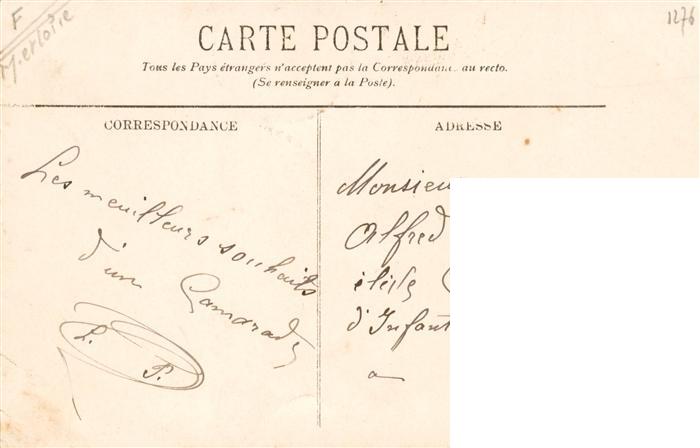 F
M. et Loire
1276
CARTE POSTALE
Tous les Pays étrangers n'acceptent pas la Correspondance au recto.
(Se renseigner à la Poste).
CORRESPONDANCE
Les meilleurs souhaits
d'un Camarade
L. P.
ADRESSE
Monsieu
Alfred
d'Infant
a